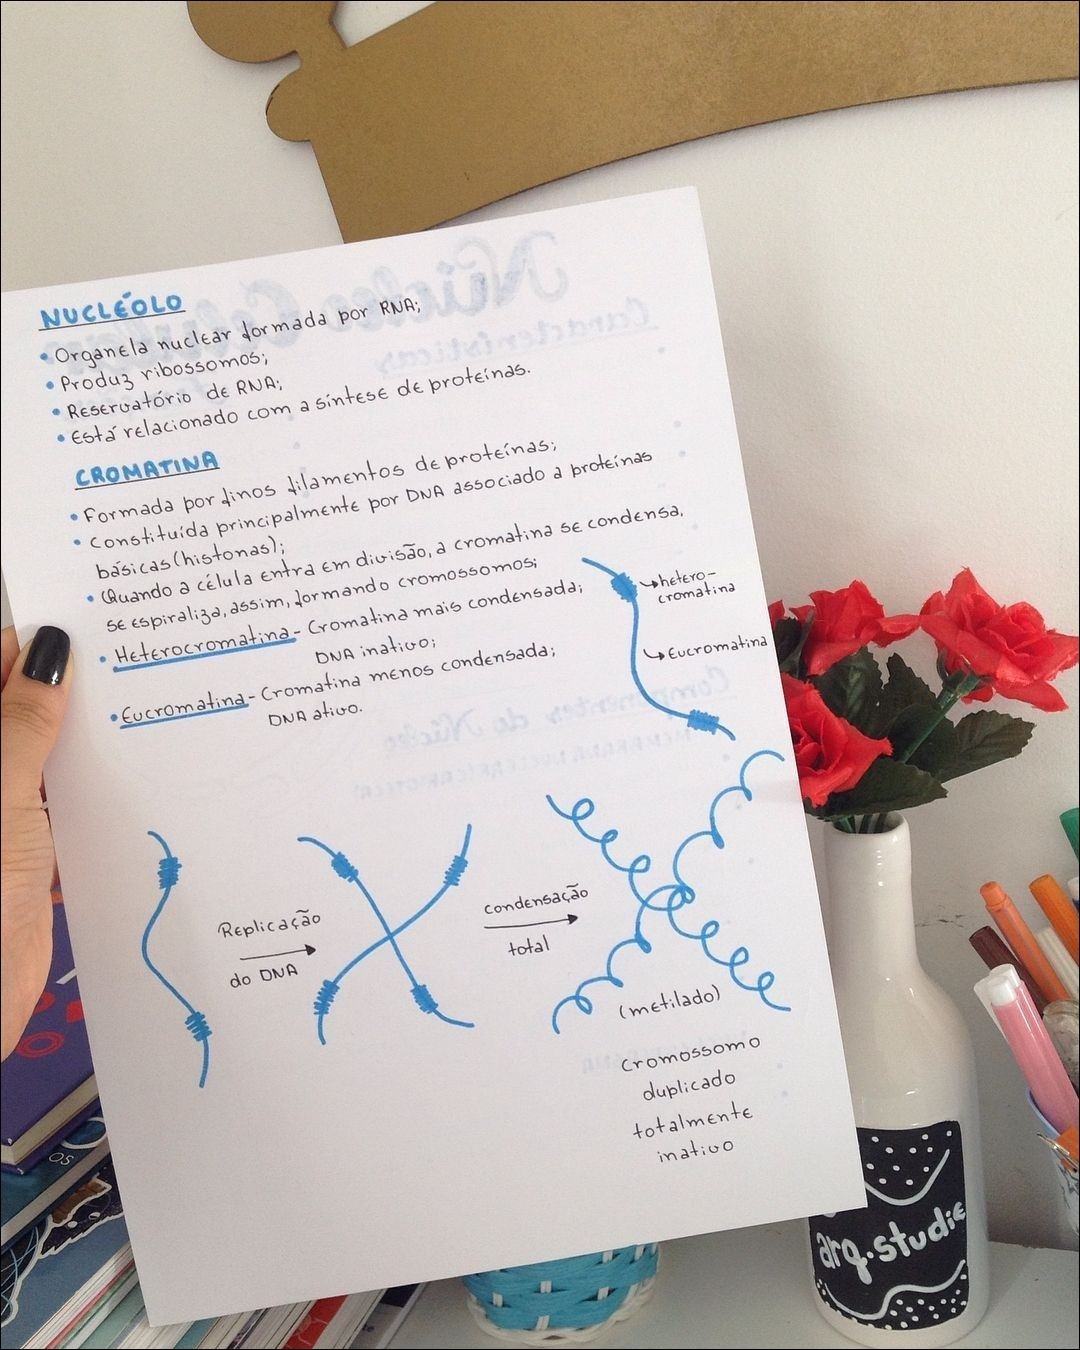 NUCLÉOLO
• Organela nuclear formada por RNA;
• Produz ribossomos;
• Reservatório de RNA;
• Está relacionado com a síntese de proteínas.
CROMATINA
• Formada por finos filamentos de proteínas;
• Constituída principalmente por DNA associado a proteínas
básicas (histonas);
• Quando a célula entra em divisão, a cromatina se condensa,
se espiraliza, assim, formando cromossomos;
• Heterocromatina - Cromatina mais condensada;
DNA inativo;
• Eucromatina - Cromatina menos condensada;
DNA ativo.
hetero-
cromatina
Eucromatina
Replicação
do DNA
condensação
total
(metilado)
Cromossomo
duplicado
totalmente
inativo
arq.studie